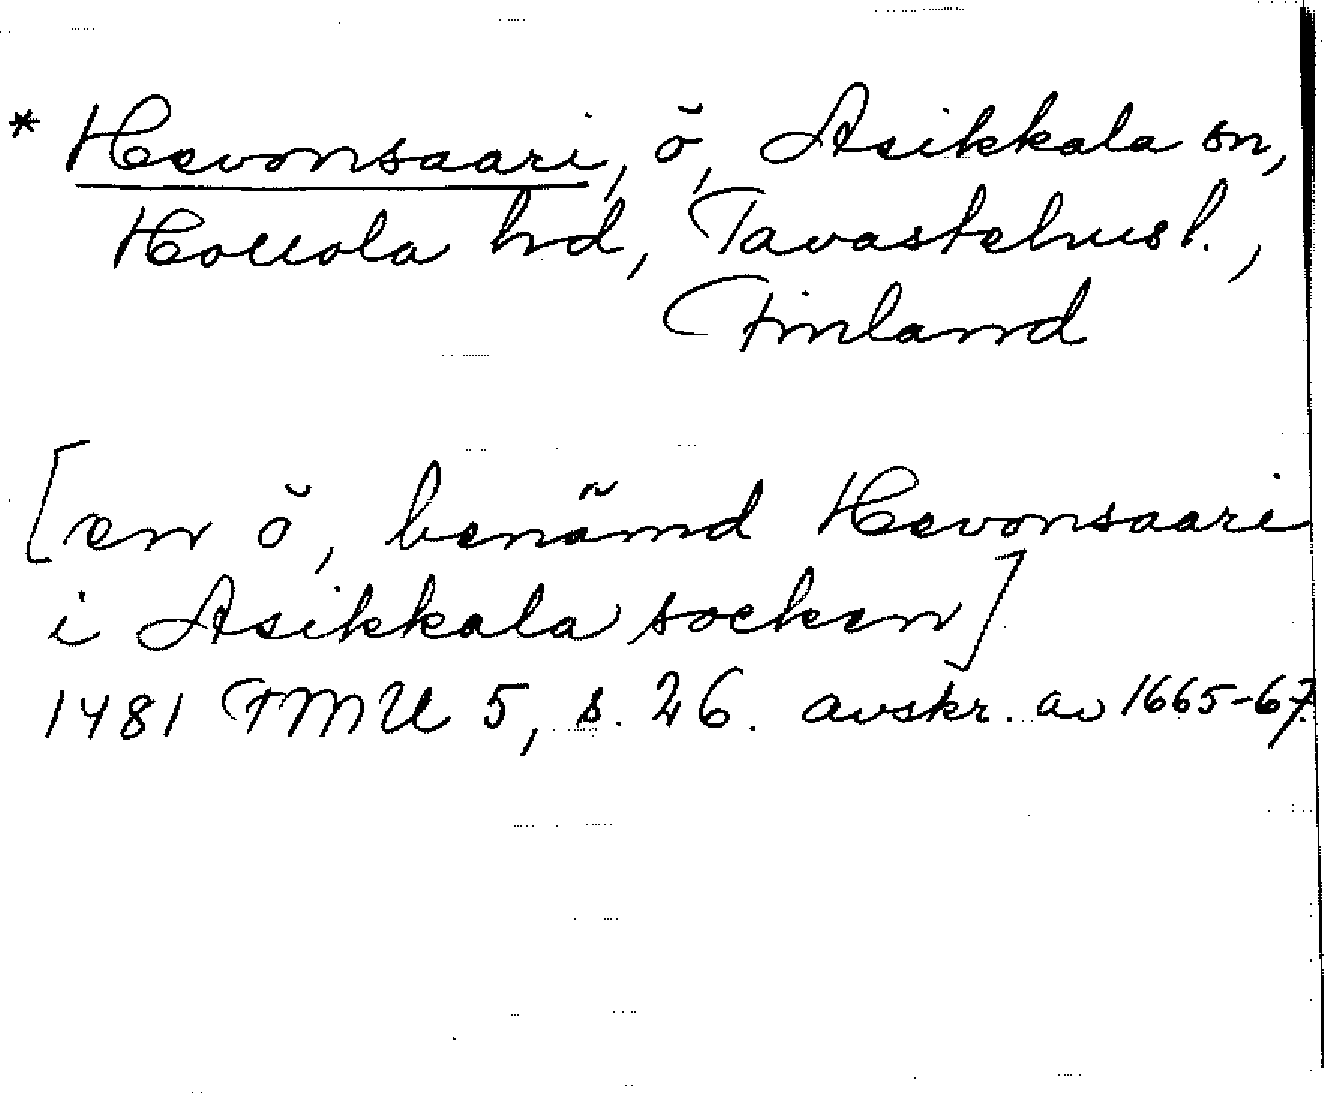 * Hevonsaari, ö, Asikkala sn,
Hollola hd, Tavastehus l.,
Finland
[en ö, benämd Hevonsaari
i Asikkala socken]
1481 FMU 5, s. 26. avskr. av 1665-67.